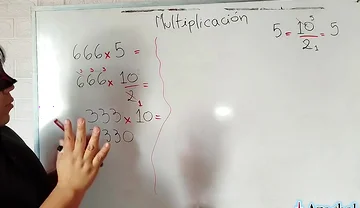 Multiplicación
666 x 5 =
666 x 10/2 =
333 x 10 =
330
5 = 10/2 = 5